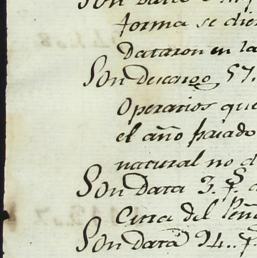 forma se die
Dataron en la
Son Descargo 57.
Operarios que
el año pasado
natural no d
Son Data 3. p.s
Cerca del Peñ
Son Data 24.. p